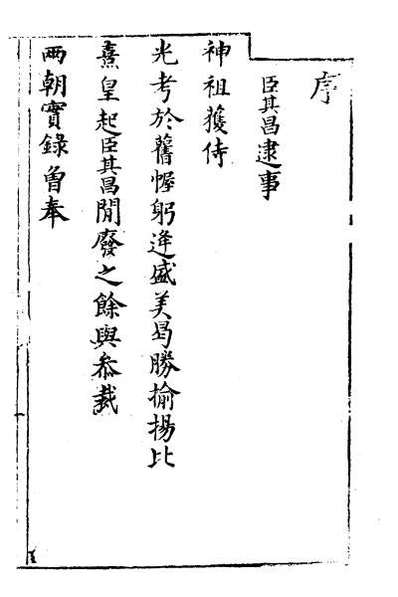 序
臣其昌逮事
神祖獲侍
光考於舊幄躬逢盛美曷勝揄揚比
熹皇起臣其昌閒廢之餘與叅裁
兩朝實錄曾奉